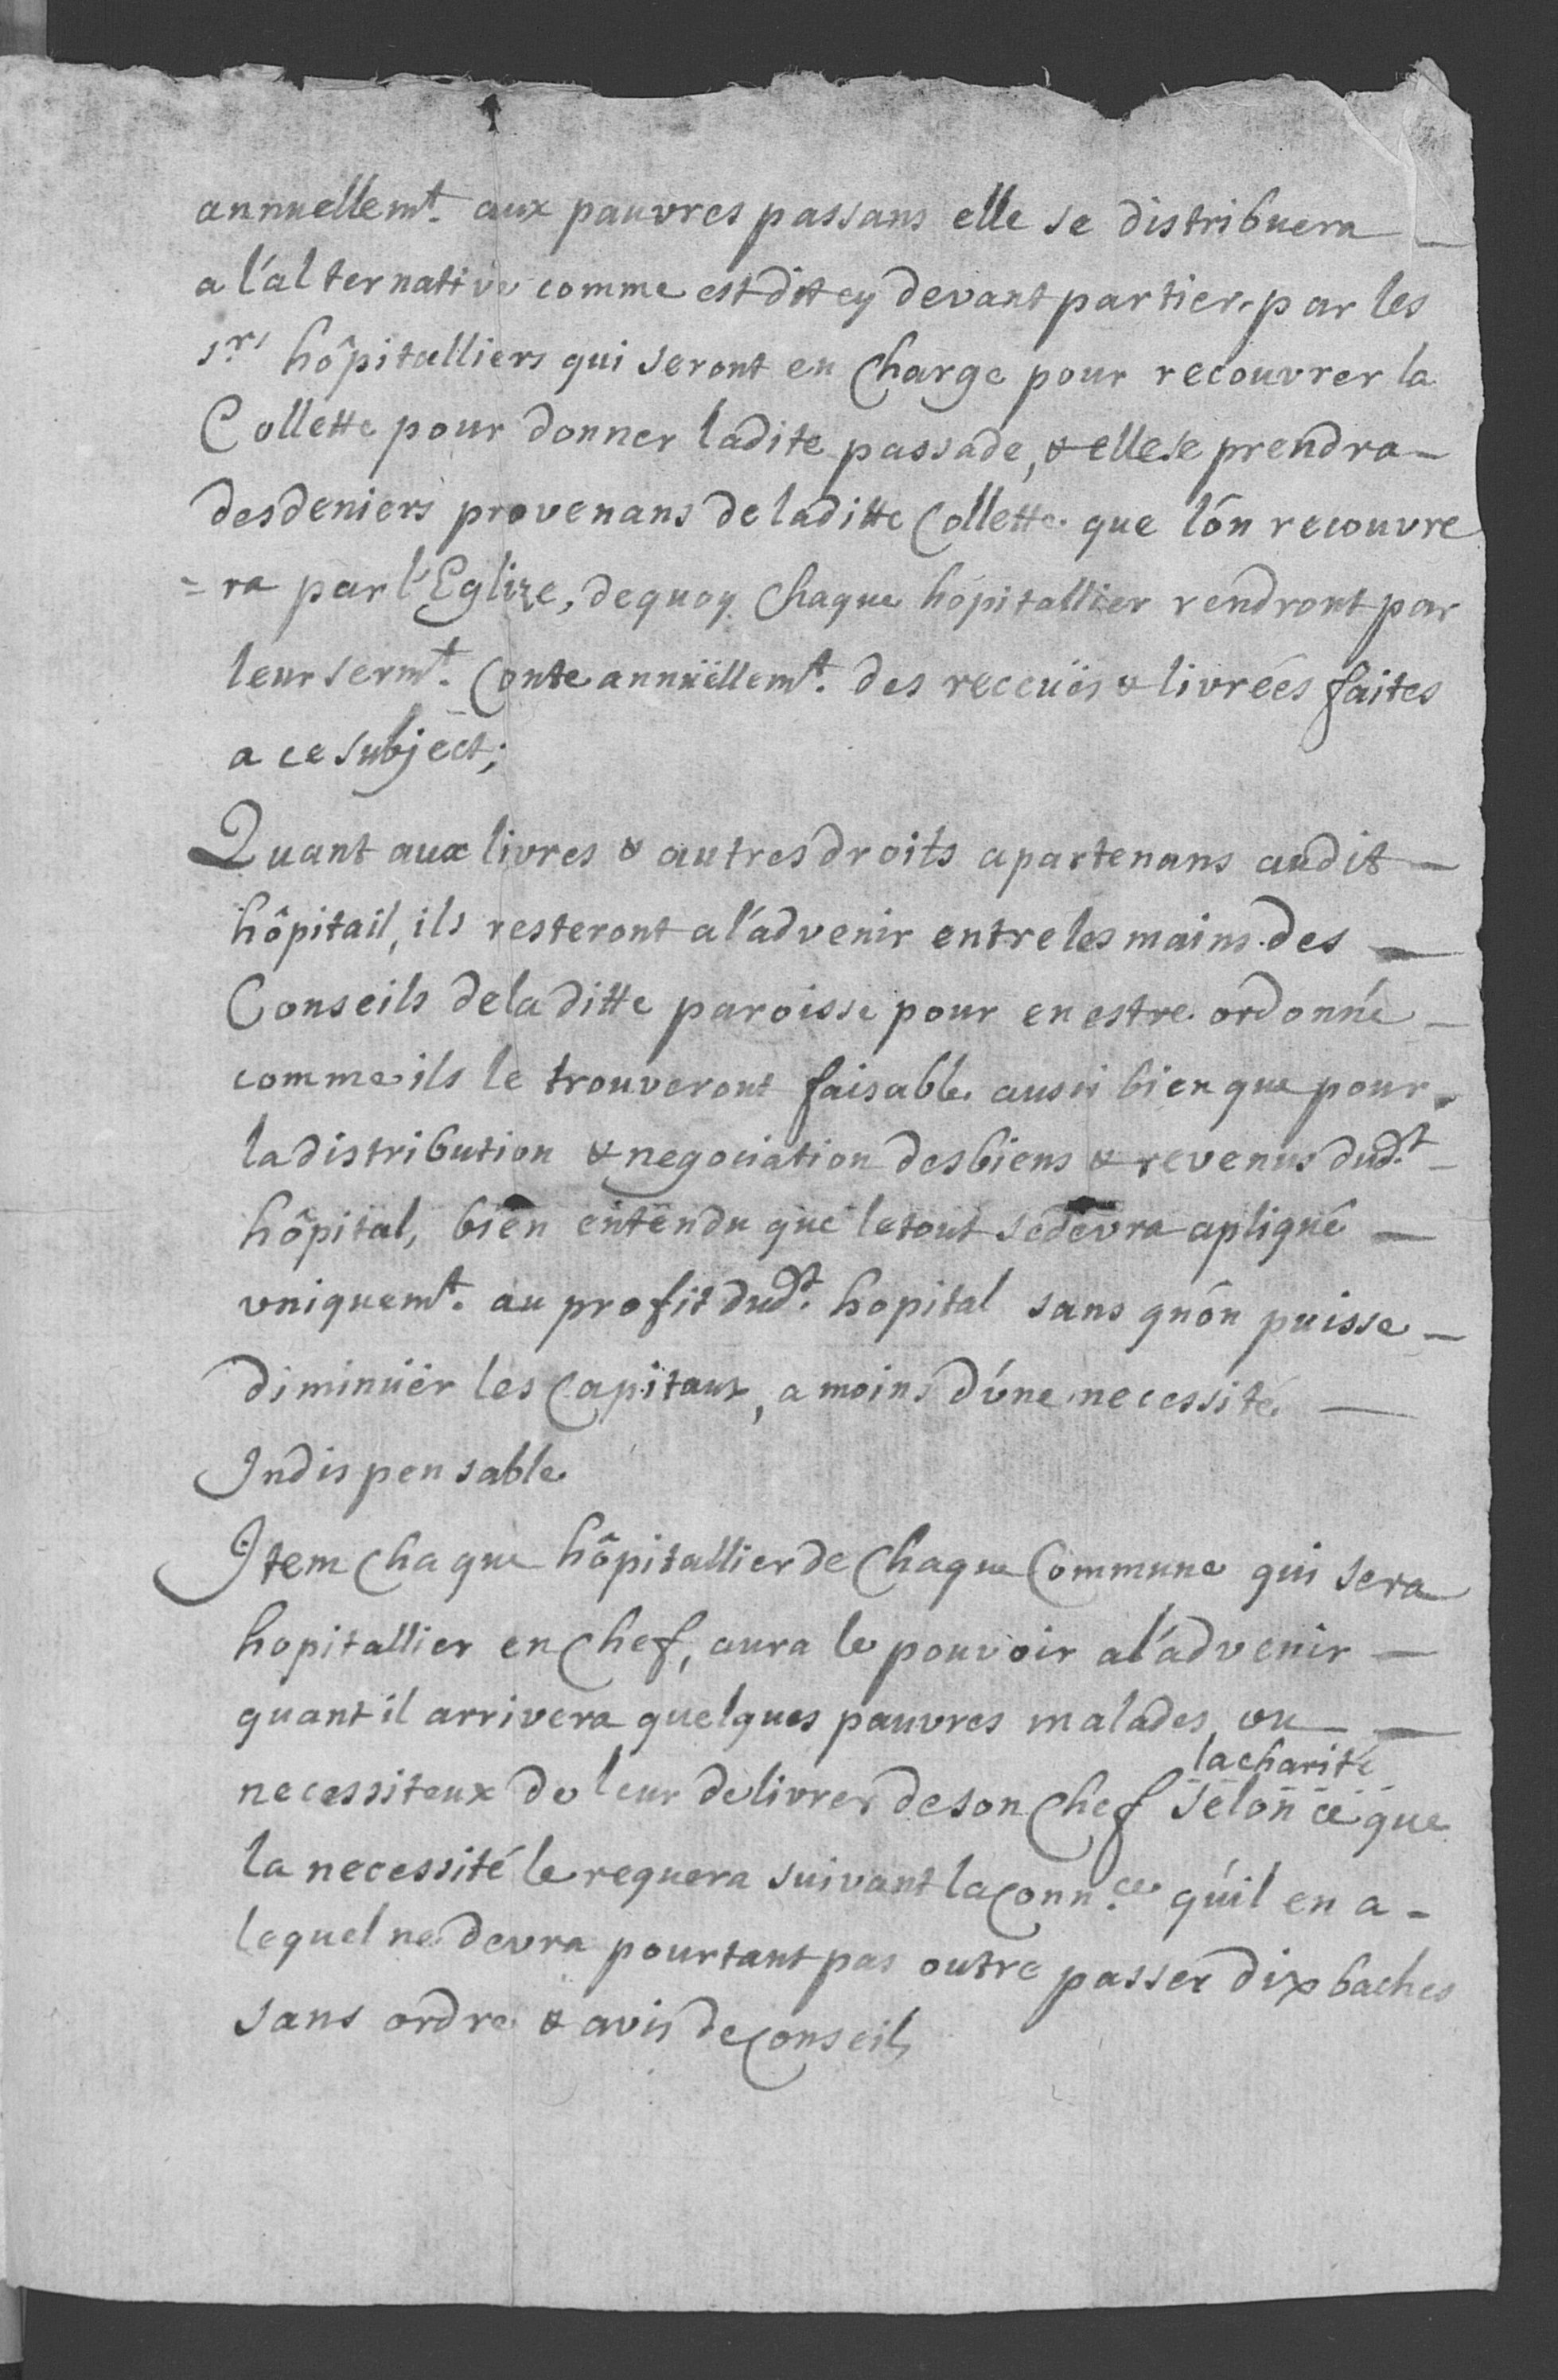 annuellem.t aux pauvres passans elle se distribuera —
a l'alternative comme est dit cy devant partier. par les
s.rs hôpitalliers qui seront en Charge pour recouvrer la
Collette pour donner ladite passade, & elle se prendra —
des deniers provenans de laditte Collette. que l'ón recouvre
= ra par l'Eglize, dequoy Chaque hôpitallier rendront par
leur serm.t Conte annuëllem.t des receuës & livrées faites
a ce subject;
Quant aux livres & autres droits apartenans audit —
hôpitail, ils resteront a l'advenir entre les mains des —
Conseils de laditte paroisse pour en estre ordonné —
comme ils le trouveront faisable aussi bien que pour
la distribution & negociation des biens & revenus dud.t —
hôpital, bien entendu que le tout se devra apliqué —
uniquem.t au profit dud.t hopital sans qu'ón puisse —
diminüer les Capitaux, a moins d'úne necessité —
Indispensable
Item Chaque hôpitallier de Chaque Commune qui sera
hopitallier en Chef, aura le pouvoir a l'advenir —
quant il arrivera quelques pauvres malades, ou —
la charité
necessiteux de leur delivrer de son Chef selon ce que
la necessité le requera suivant la Conn.ce qu'il en a —
lequel ne devra pourtant pas outre passer dix baches
sans ordre & avis de Conseils